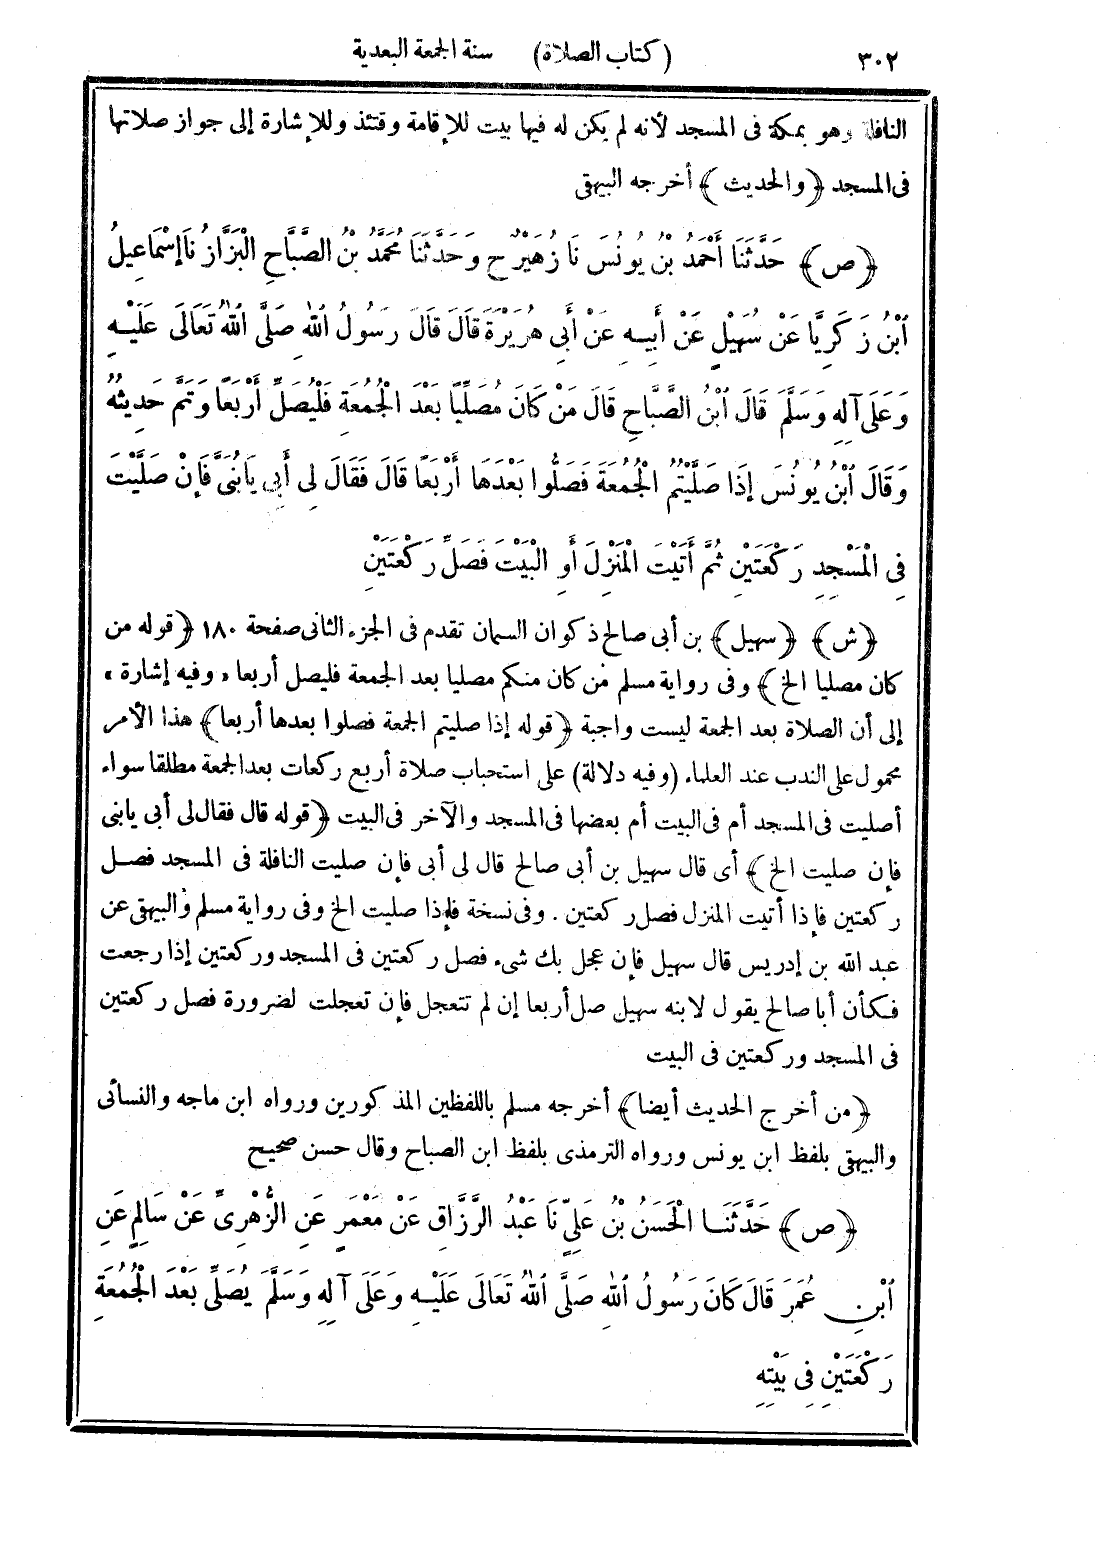 ٣٠٢ (كتاب الصلاة) سنة الجمعة البعدية
النافلة وهو بمكة فى المسجد لأنه لم يكن له فيها بيت للإقامة وقتئذ وللإشارة إلى جواز صلاتها
فى المسجد ﴿والحديث﴾ أخرجه البيهقى
﴿ص﴾ حَدَّثَنَا أَحْمَدُ بْنُ يُونُسَ نَا زُهَيْرٌ ح وَحَدَّثَنَا مُحَمَّدُ بْنُ الصَّبَّاحِ الْبَزَّازُ نَا إِسْمَاعِيلُ
ابْنُ زَكَرِيَّا عَنْ سُهَيْلٍ عَنْ أَبِيهِ عَنْ أَبِى هُرَيْرَةَ قَالَ قَالَ رَسُولُ اللهِ صَلَّى اللهُ تَعَالَى عَلَيْهِ
وَعَلَى آلِهِ وَسَلَّمَ قَالَ ابْنُ الصَّبَّاحِ قَالَ مَنْ كَانَ مُصَلِّيًا بَعْدَ الْجُمُعَةِ فَلْيُصَلِّ أَرْبَعًا وَتَمَّ حَدِيثُهُ
وَقَالَ ابْنُ يُونُسَ إِذَا صَلَّيْتُمُ الْجُمُعَةَ فَصَلُّوا بَعْدَهَا أَرْبَعًا قَالَ فَقَالَ لِى أَبِى يَابُنَىَّ فَإِنْ صَلَّيْتَ
فِى الْمَسْجِدِ رَكْعَتَيْنِ ثُمَّ أَتَيْتَ الْمَنْزِلَ أَوِ الْبَيْتَ فَصَلِّ رَكْعَتَيْنِ
﴿ش﴾ ﴿سهيل﴾ بن أبى صالح ذكوان السمان تقدم فى الجزء الثانى صفحة ١٨٠ ﴿قوله من
كان مصليا الخ﴾ وفى رواية مسلم من كان منكم مصليا بعد الجمعة فليصل أربعا «وفيه إشارة»
إلى أن الصلاة بعد الجمعة ليست واجبة ﴿قوله إذا صليتم الجمعة فصلوا بعدها أربعا﴾ هذا الأمر
محمول على الندب عند العلماء (وفيه دلالة) على استحباب صلاة أربع ركعات بعد الجمعة مطلقا سواء
أصليت فى المسجد أم فى البيت أم بعضها فى المسجد والآخر فى البيت ﴿قوله قال فقال لى أبى يابنى
فإن صليت الخ﴾ أى قال سهيل بن أبى صالح قال لى أبى فإن صليت النافلة فى المسجد فصل
ركعتين فإذا أتيت المنزل فصل ركعتين. وفى نسخة فإذا صليت الخ وفى رواية مسلم والبيهقى عن
عبد الله بن إدريس قال سهيل فإن عجل بك شىء فصل ركعتين فى المسجد وركعتين إذا رجعت
فكأن أبا صالح يقول لابنه سهيل صل أربعا إن لم تتعجل فإن تعجلت لضرورة فصل ركعتين
فى المسجد وركعتين فى البيت
﴿من أخرج الحديث أيضا﴾ أخرجه مسلم باللفظين المذكورين ورواه ابن ماجه والنسائى
والبيهقى بلفظ ابن يونس ورواه الترمذى بلفظ ابن الصباح وقال حسن صحيح
﴿ص﴾ حَدَّثَنَا الْحَسَنُ بْنُ عَلِىٍّ نَا عَبْدُ الرَّزَّاقِ عَنْ مَعْمَرٍ عَنِ الزُّهْرِىِّ عَنْ سَالِمٍ عَنِ
ابْنِ عُمَرَ قَالَ كَانَ رَسُولُ اللهِ صَلَّى اللهُ تَعَالَى عَلَيْهِ وَعَلَى آلِهِ وَسَلَّمَ يُصَلِّى بَعْدَ الْجُمُعَةِ
رَكْعَتَيْنِ فِى بَيْتِهِ